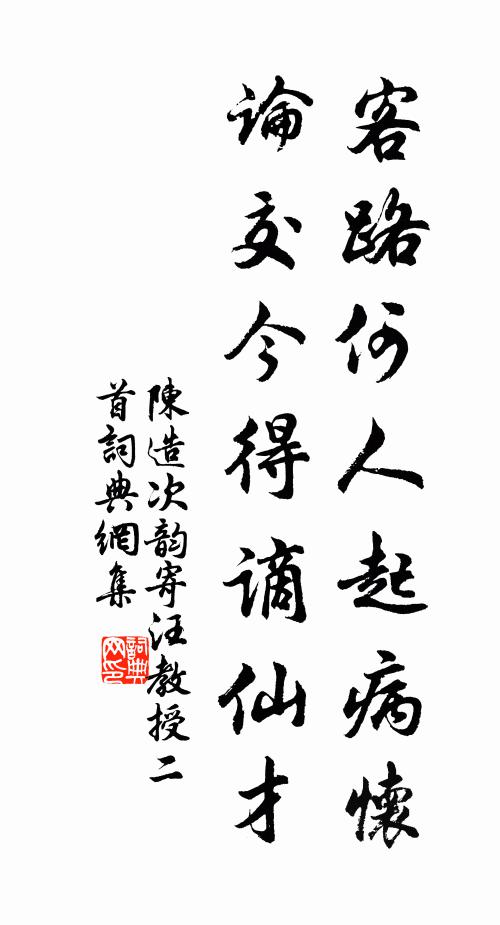 客路何人起病懷
論交今得謫仙才
陳造次韵寄汪教授二
首詞典網集
詞典
网印